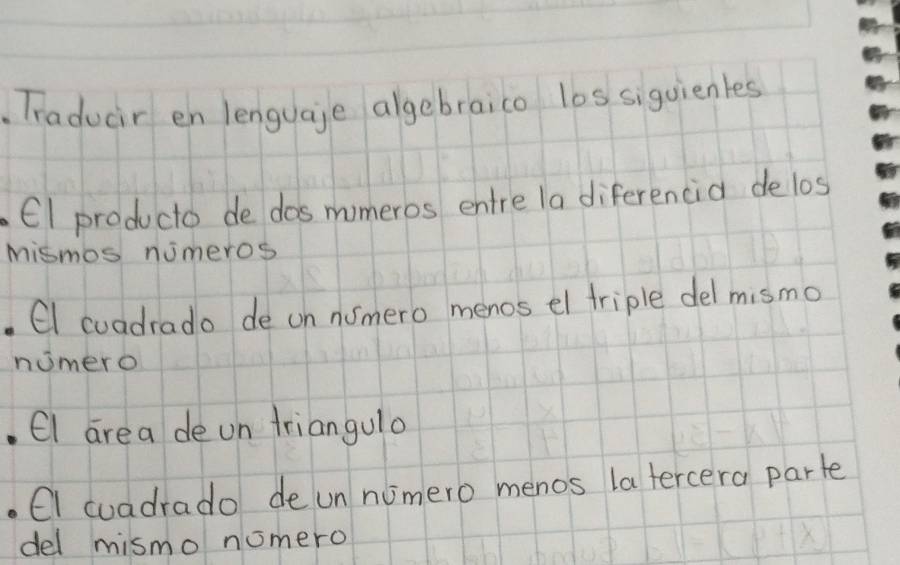 . Traducir en lenguaje algebraico los siguientes
. El producto de dos números entre la diferencia de los
mismos números
. El cuadrado de un número menos el triple del mismo
número
. El área de un triangulo
. El cuadrado de un número menos la tercera parte
del mismo número